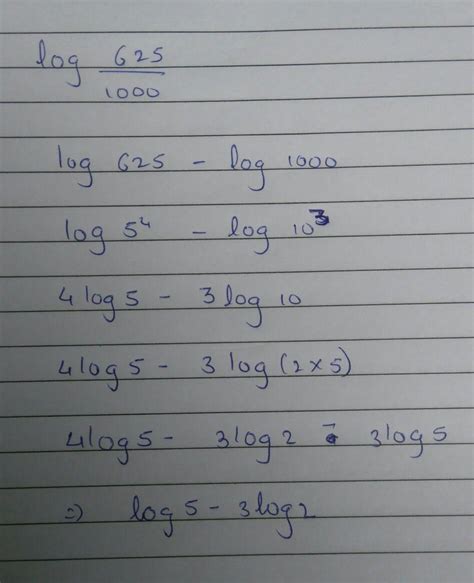 log 625/1000
log 625 - log 1000
log 5⁴ - log 10³
4log5 - 3log10
4log5 - 3log(2×5)
4log5 - 3log2 - 3log5
⇒ log5 - 3log2